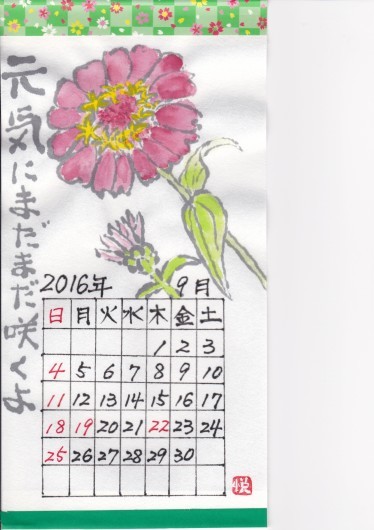 元気にまだまだ咲くよ
2016年 9月
日 月 火 水 木 金 土
1 2 3
4 5 6 7 8 9 10
11 12 13 14 15 16 17
18 19 20 21 22 23 24
25 26 27 28 29 30
悦